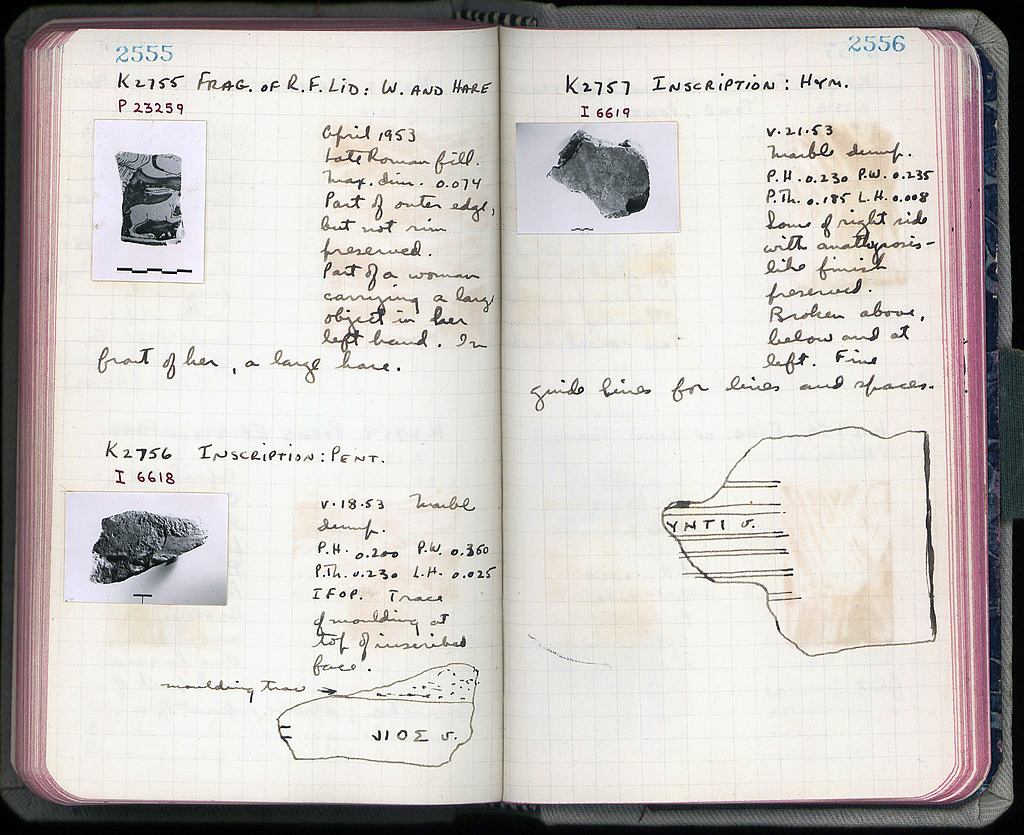 2555
K2755 FRAG. OF R.F. LID: W. AND HARE
P 23259
April 1953
Late Roman fill.
Max. dim. 0.074
Part of outer edge,
but not rim
preserved.
Part of a woman
carrying a large
object in her
left hand. In
front of her, a large hare.
K2756 INSCRIPTION: PENT.
I 6618
V.18.53 Marble
dump.
P.H. 0.200 P.W. 0.360
P.Th. 0.230 L.H. 0.025
IFOP. Trace
of moulding at
top of inscribed
face.
moulding trace
ΙΟΣ v.
2556
K2757 INSCRIPTION: HYM.
I 6619
V.21.53
Marble dump.
P.H. 0.230 P.W. 0.235
P.Th. 0.185 L.H. 0.008
Some of right side
with anathyrosis-
like finish
preserved.
Broken above,
below and at
left. Fine
guide lines for lines and spaces.
ΥΝΤΙ v.